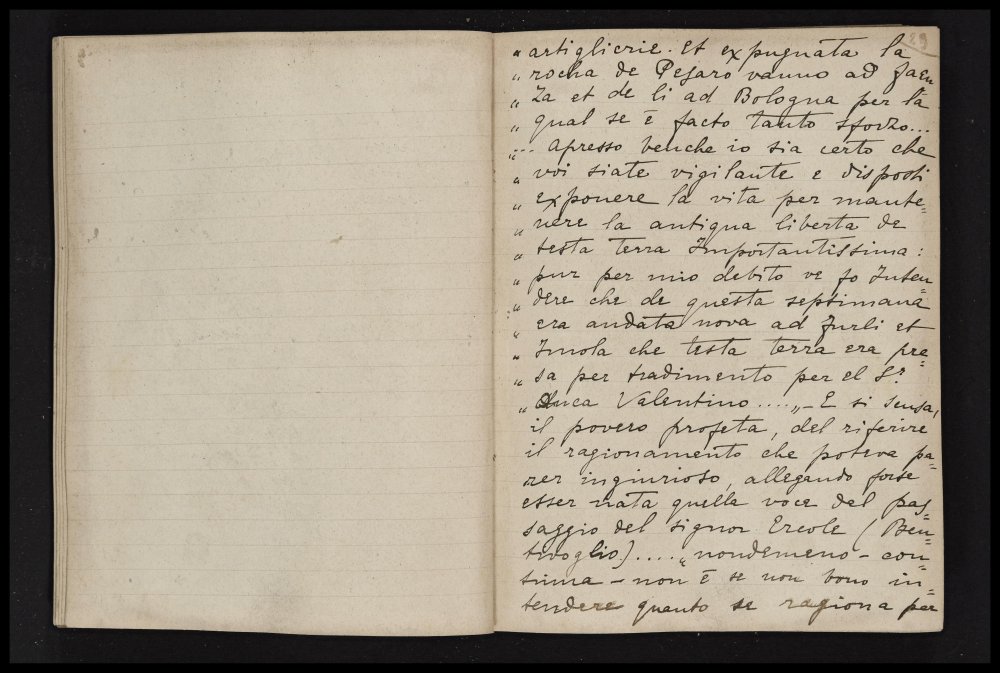 29
„ artiglierie. Et expugnata la
„ rocha de Pesaro vanno ad faen
„ za et de li ad Bologna per la
„ qual se ē facto tanto sforzo...
„ ... Apresso benche io sia certo che
„ voi siate vigilante e disposti
„ exponere la vita per mante=
„ nere la antiqua liberta de
„ testa terra Importantissima:
„ pur per mio debito ve fo Inten=
„ dere che de questa septimana
„ era andata nova ad furli et
„ Imola che testa terra era pre=
„ sa per tradimento per el S.r
„ Duca Valentino ....„ - E si scusa,
il povero profeta, del riferire
il ragionamento che poteva pa=
rer ingiurioso, allegando forse
esser nata quella voce dal pas=
saggio del signor Ercole (Ben=
tivoglio) .... „ nondemeno - con=
tinua - non ē se non bono in=
tendere quanto se ragiona per